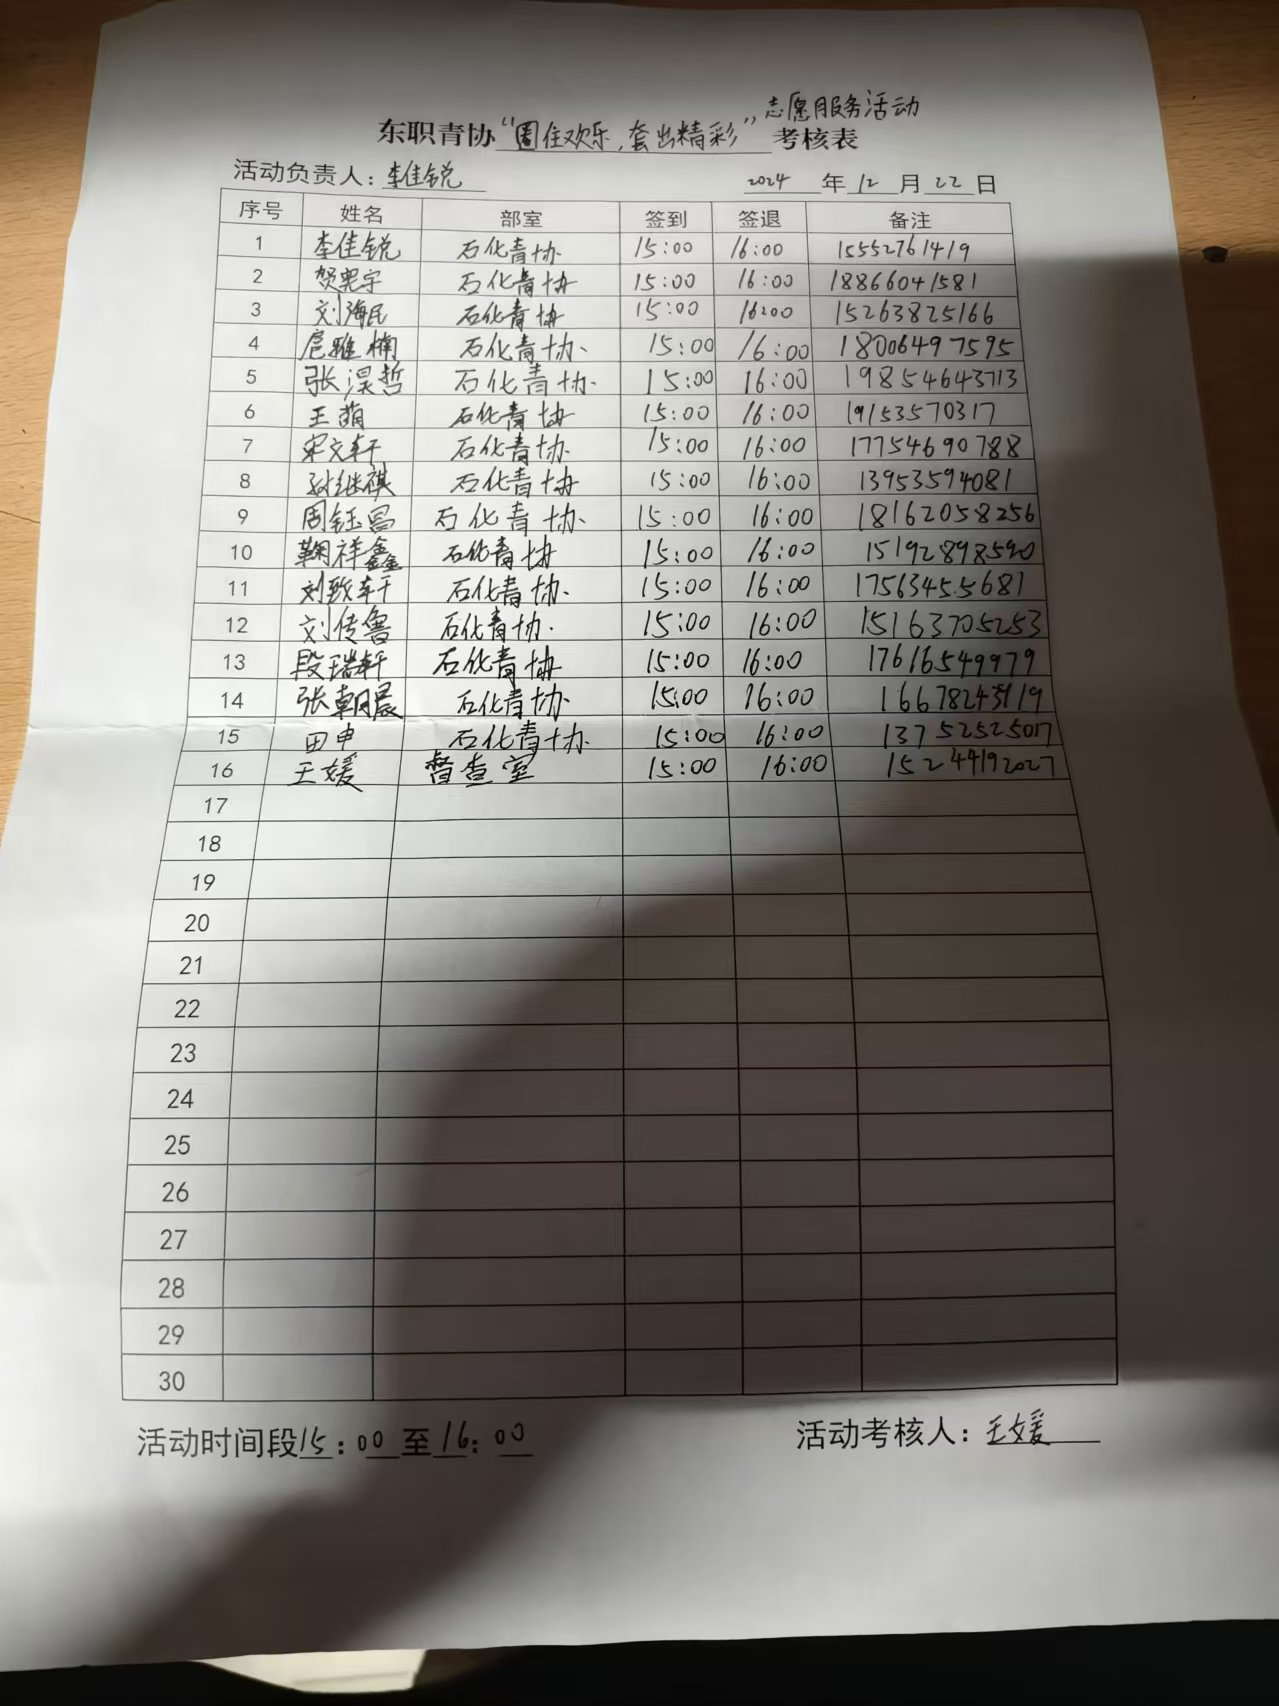 志愿服务活动
东职青协“圈住欢乐,套出精彩”考核表
活动负责人:李佳锐 2024 年 12 月 22 日
序号 姓名 部室 签到 签退 备注
1 李佳锐 石化青协 15:00 16:00 15552761419
2 贺宪宇 石化青协 15:00 16:00 18866041581
3 刘海民 石化青协 15:00 16:00 15263825166
4 扈雅楠 石化青协. 15:00 16:00 18006497595
5 张淏哲 石化青协. 15:00 16:00 19854643713
6 王萌 石化青协 15:00 16:00 19153570317
7 宋文轩 石化青协. 15:00 16:00 17754690788
8 孙继祺 石化青协 15:00 16:00 13953594081
9 周钰昌 石化青协. 15:00 16:00 18162058256
10 鞠祥鑫 石化青协 15:00 16:00 15192898590
11 刘致轩 石化青协. 15:00 16:00 17563455681
12 刘传鲁 石化青协. 15:00 16:00 15163705253
13 段瑞轩 石化青协 15:00 16:00 17616549979
14 张朝晨 石化青协. 15:00 16:00
15 田申 石化青协. 15:00 16:00 13752525017
16 王媛 督查室 15:00 16:00 15244192027
17
18
19
20
21
22
23
24
25
26
27
28
29
30
活动时间段15:00至16:00 活动考核人:王媛